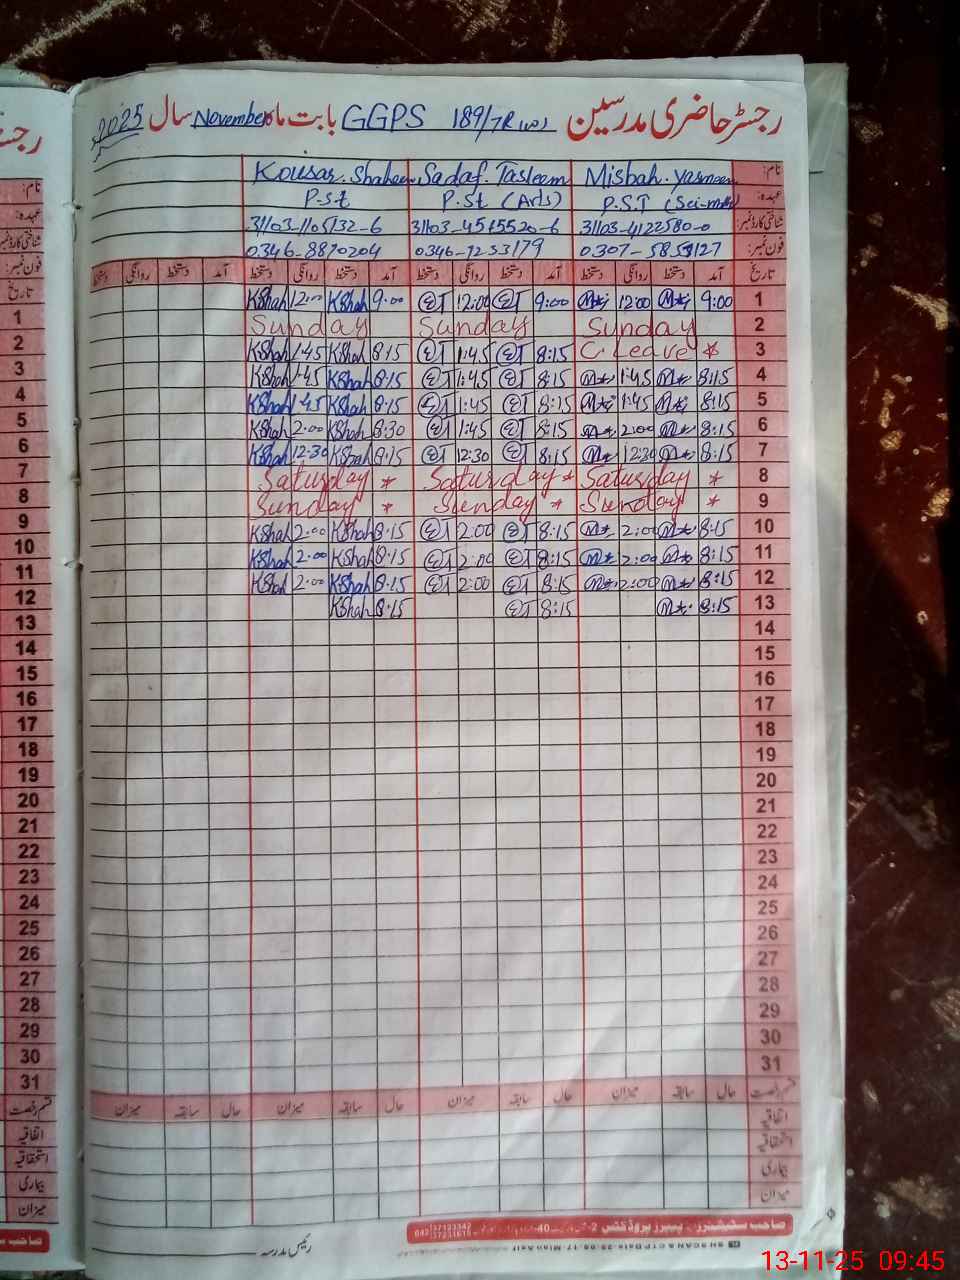 رجسٹر حاضری مدرسین GGPS 189/7R بابت ماہ November سال 2025
نام: Misbah. Yasmeen Sadaf. Tasleem Kousar. Shaheen
عہدہ: P.S.T (Sci-math) P.St (Arts) P.S.t
شناختی کارڈ نمبر: 31103-4122580-0 31103-4545520-6 31103-1105132-6
فون نمبر: 0307-5853127 0346-7253179 0346-8870204
تاریخ آمد دستخط روانگی دستخط آمد دستخط روانگی دستخط آمد دستخط روانگی دستخط آمد دستخط روانگی دستخط
1 9:00 12:00 9:00 12:00 9:00 KShah 12:00 KShah
2 Sunday Sunday Sunday
3 C. Leave * 8:15 1:45 8:15 KShah 1:45 KShah
4 8:15 1:45 8:15 1:45 8:15 KShah 1:45 KShah
5 8:15 1:45 8:15 1:45 8:15 KShah 1:45 KShah
6 8:15 2:00 8:15 1:45 8:30 KShah 2:00 KShah
7 8:15 12:30 8:15 12:30 8:15 KShah 12:30 KShah
8 Saturday * Saturday * Saturday *
9 Sunday * Sunday * Sunday *
10 8:15 2:00 8:15 2:00 8:15 KShah 2:00 KShah
11 8:15 2:00 8:15 2:00 8:15 KShah 2:00 KShah
12 8:15 2:00 8:15 2:00 8:15 KShah 2:00 KShah
13 8:15 8:15 8:15 KShah
14
15
16
17
18
19
20
21
22
23
24
25
26
27
28
29
30
31
قسم رخصت حال سابقہ میزان حال سابقہ میزان حال سابقہ میزان حال سابقہ میزان
اتفاقیہ
استحقاقیہ
بیماری
میزان
رئیس مدرسہ
رجسٹر
نام:
عہدہ:
شناختی کارڈ نمبر:
فون نمبر:
تاریخ
1
2
3
4
5
6
7
8
9
10
11
12
13
14
15
16
17
18
19
20
21
22
23
24
25
26
27
28
29
30
31
قسم رخصت
اتفاقیہ
استحقاقیہ
بیماری
میزان
13-11-25 09:45